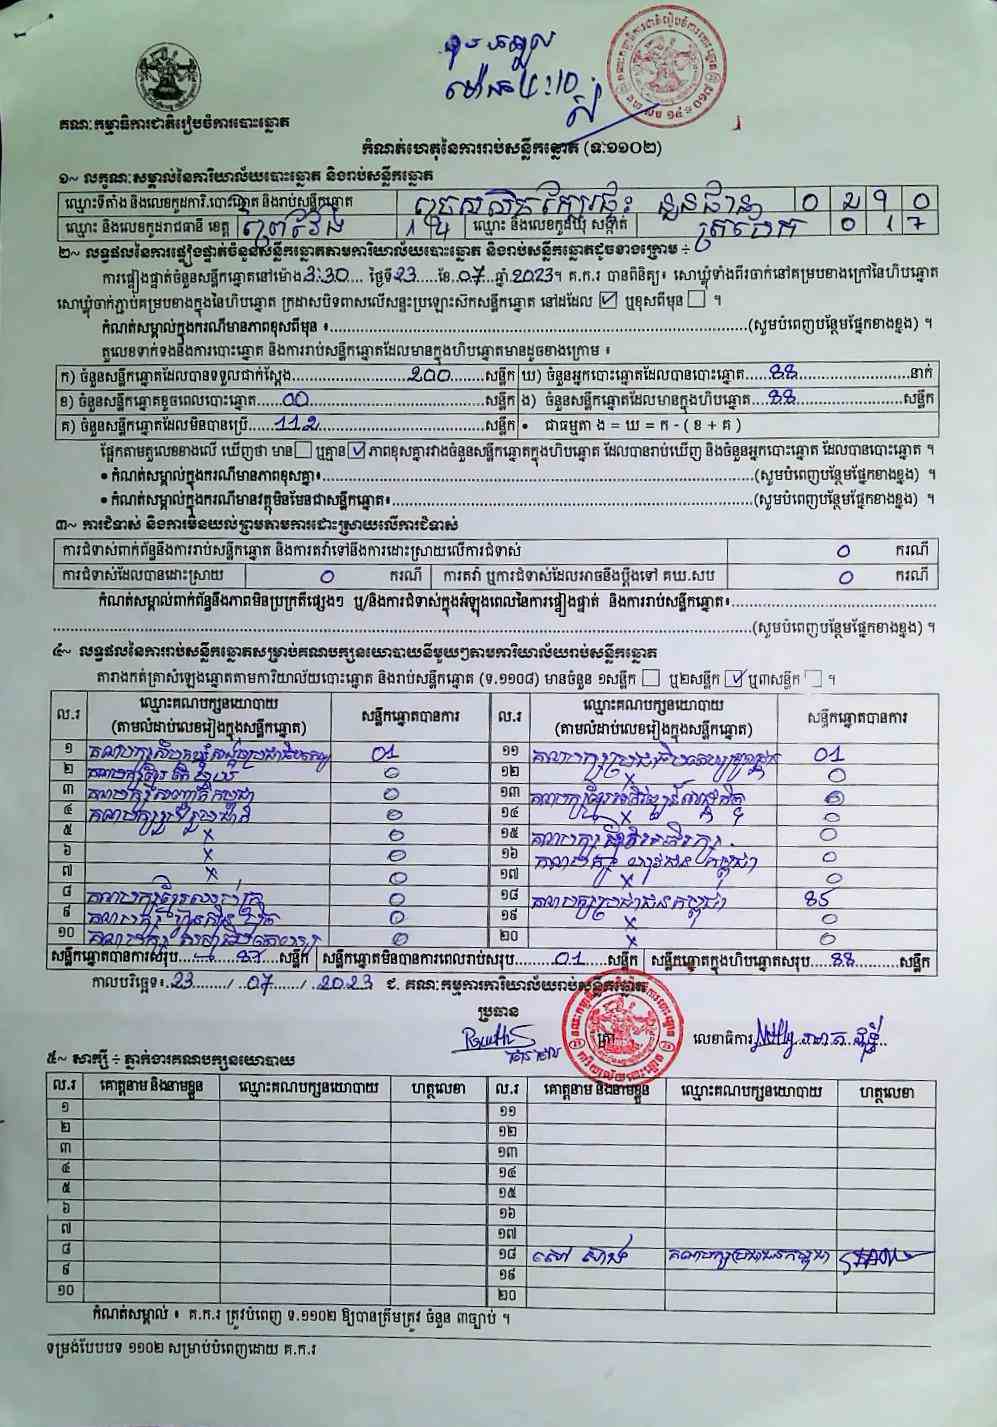 គណៈកម្មាធិការជាតិរៀបចំការបោះឆ្នោត
កំណត់ហេតុនៃការរាប់សន្លឹកឆ្នោត (ទ.១១០២)
១~ លក្ខណៈសម្គាល់នៃការិយាល័យបោះឆ្នោត និងរាប់សន្លឹកឆ្នោត
ឈ្មោះទីតាំង និងលេខកូដការិ.បោះឆ្នោត និងរាប់សន្លឹកឆ្នោត 0 2 9 0
ឈ្មោះ និងលេខកូដរាជធានី ខេត្ត ព្រៃវែង 14 ឈ្មោះ និងលេខកូដឃុំ សង្កាត់ 0 1 7
២~ លទ្ធផលនៃការផ្ទៀងផ្ទាត់ចំនួនសន្លឹកឆ្នោតតាមការិយាល័យបោះឆ្នោត និងរាប់សន្លឹកឆ្នោតដូចខាងក្រោម ÷
ការផ្ទៀងផ្ទាត់ចំនួនសន្លឹកឆ្នោតនៅម៉ោង 3:30 ថ្ងៃទី 23 ខែ 07 ឆ្នាំ 2023។ គ.ក.រ បានពិនិត្យ៖ សោឃ្លុំទាំងពីរចាក់នៅគម្របខាងក្រៅនៃហិបឆ្នោត
សោឃ្លុំចាក់ភ្ជាប់គម្របខាងក្នុងនៃហិបឆ្នោត ក្រដាសបិទពាសលើសន្ទះប្រឡោះស៊កសន្លឹកឆ្នោត នៅដដែល ☑ ឬខុសពីមុន ☐ ។
កំណត់សម្គាល់ក្នុងករណីមានភាពខុសពីមុន ៖ (សូមបំពេញបន្ថែមផ្នែកខាងខ្នង) ។
តួលេខទាក់ទងនឹងការបោះឆ្នោត និងការរាប់សន្លឹកឆ្នោតដែលមានក្នុងហិបឆ្នោតមានដូចខាងក្រោម ៖
ក) ចំនួនសន្លឹកឆ្នោតដែលបានទទួលជាក់ស្ដែង 200 សន្លឹក ឃ) ចំនួនអ្នកបោះឆ្នោតដែលបានបោះឆ្នោត 88 នាក់
ខ) ចំនួនសន្លឹកឆ្នោតខូចពេលបោះឆ្នោត 00 សន្លឹក ង) ចំនួនសន្លឹកឆ្នោតដែលមានក្នុងហិបឆ្នោត 88 សន្លឹក
គ) ចំនួនសន្លឹកឆ្នោតដែលមិនបានប្រើ 112 សន្លឹក • ជាធម្មតា ង = ឃ = ក - ( ខ + គ )
ផ្អែកតាមតួលេខខាងលើ ឃើញថា មាន ☐ ឬគ្មាន ☑ ភាពខុសគ្នារវាងចំនួនសន្លឹកឆ្នោតក្នុងហិបឆ្នោត ដែលបានរាប់ឃើញ និងចំនួនអ្នកបោះឆ្នោត ដែលបានបោះឆ្នោត ។
• កំណត់សម្គាល់ក្នុងករណីមានភាពខុសគ្នា៖ (សូមបំពេញបន្ថែមផ្នែកខាងខ្នង) ។
• កំណត់សម្គាល់ក្នុងករណីមានវត្ថុមិនមែនជាសន្លឹកឆ្នោត៖ (សូមបំពេញបន្ថែមផ្នែកខាងខ្នង) ។
៣~ ការជំទាស់ និងការមិនយល់ព្រមតាមការដោះស្រាយលើការជំទាស់
ការជំទាស់ពាក់ព័ន្ធនឹងការរាប់សន្លឹកឆ្នោត និងការតវ៉ាទៅនឹងការដោះស្រាយលើការជំទាស់ 0 ករណី
ការជំទាស់ដែលបានដោះស្រាយ 0 ករណី ការតវ៉ា ឬការជំទាស់ដែលអាចនឹងប្ដឹងទៅ គឃ.សប 0 ករណី
កំណត់សម្គាល់ពាក់ព័ន្ធនឹងភាពមិនប្រក្រតីផ្សេងៗ ឬ/និងការជំទាស់ក្នុងអំឡុងពេលនៃការផ្ទៀងផ្ទាត់ និងការរាប់សន្លឹកឆ្នោត៖
(សូមបំពេញបន្ថែមផ្នែកខាងខ្នង) ។
៤~ លទ្ធផលនៃការរាប់សន្លឹកឆ្នោតសម្រាប់គណបក្សនយោបាយនីមួយៗតាមការិយាល័យរាប់សន្លឹកឆ្នោត
តារាងកត់ត្រាសំឡេងឆ្នោតតាមការិយាល័យបោះឆ្នោត និងរាប់សន្លឹកឆ្នោត (ទ.១១០៨) មានចំនួន ១សន្លឹក ☐ ឬ២សន្លឹក ☑ ឬ៣សន្លឹក ☐ ។
ល.រ ឈ្មោះគណបក្សនយោបាយ (តាមលំដាប់លេខរៀងក្នុងសន្លឹកឆ្នោត) សន្លឹកឆ្នោតបានការ ល.រ ឈ្មោះគណបក្សនយោបាយ (តាមលំដាប់លេខរៀងក្នុងសន្លឹកឆ្នោត) សន្លឹកឆ្នោតបានការ
១ 01 ១១ 01
២ 0 ១២ x 0
៣ 0 ១៣ 0
៤ 0 ១៤ x 0
៥ x 0 ១៥ 0
៦ x 0 ១៦ គណបក្ស យុវជន កម្ពុជា 0
៧ x 0 ១៧ x 0
៨ 0 ១៨ គណបក្សប្រជាជនកម្ពុជា 85
៩ គណបក្ស ហ៊្វុនស៊ិនប៉ិច 0 ១៩ x 0
១០ 0 ២០ x 0
សន្លឹកឆ្នោតបានការសរុប 87 សន្លឹក សន្លឹកឆ្នោតមិនបានការពេលរាប់សរុប 01 សន្លឹក សន្លឹកឆ្នោតក្នុងហិបឆ្នោតសរុប 88 សន្លឹក
កាលបរិច្ឆេទ៖ 23 / 07 / 2023 ជ. គណៈកម្មការការិយាល័យរាប់សន្លឹកឆ្នោត
ប្រធាន
ត្រា លេខាធិការ
៥~ សាក្សី ÷ ភ្នាក់ងារគណបក្សនយោបាយ
ល.រ គោត្តនាម និងនាមខ្លួន ឈ្មោះគណបក្សនយោបាយ ហត្ថលេខា ល.រ គោត្តនាម និងនាមខ្លួន ឈ្មោះគណបក្សនយោបាយ ហត្ថលេខា
១ ១១
២ ១២
៣ ១៣
៤ ១៤
៥ ១៥
៦ ១៦
៧ ១៧
៨ ១៨ គណបក្សប្រជាជនកម្ពុជា
៩ ១៩
១០ ២០
កំណត់សម្គាល់ ៖ គ.ក.រ ត្រូវបំពេញ ទ.១១០២ ឱ្យបានត្រឹមត្រូវ ចំនួន ៣ច្បាប់ ។
ទម្រង់បែបបទ ១១០២ សម្រាប់បំពេញដោយ គ.ក.រ